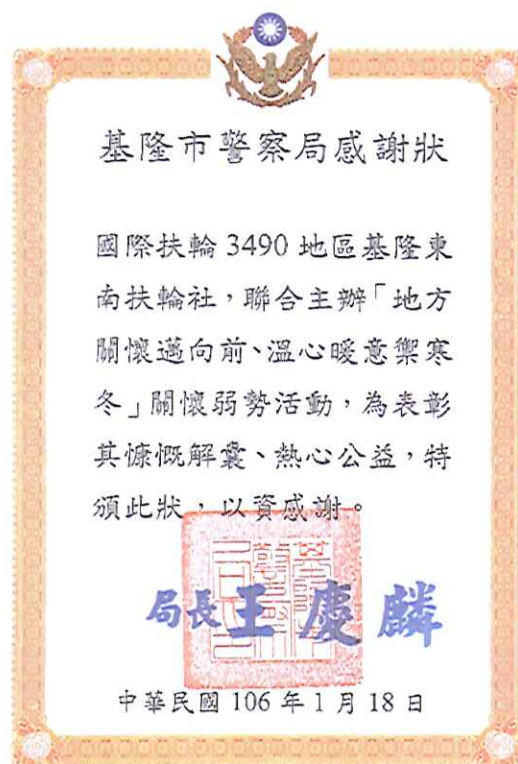 基隆市警察局感謝狀
國際扶輪 3490 地區基隆東
南扶輪社，聯合主辦「地方
關懷邁向前、溫心暖意禦寒
冬」關懷弱勢活動，為表彰
其慷慨解囊、熱心公益，特
頒此狀，以資感謝。
局長王慶麟
中華民國 106 年 1 月 18 日